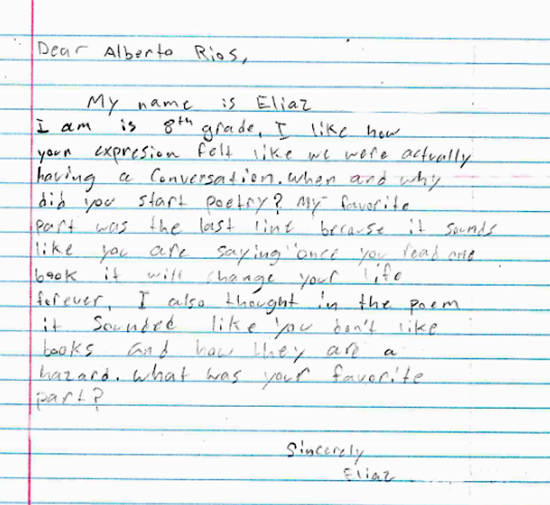 Dear Alberto Rios,
My name is Eliaz
I am is 8th grade. I like how
your expresion felt like we were actually
having a conversation. When and why
did you start poetry? My favorite
part was the last line because it sounds
like you are saying "once you read one
book it will change your life
forever, I also thought in the poem
it sounded like you don't like
books and how they are a
hazard. What was your favorite
part?
Sincerely
Eliaz